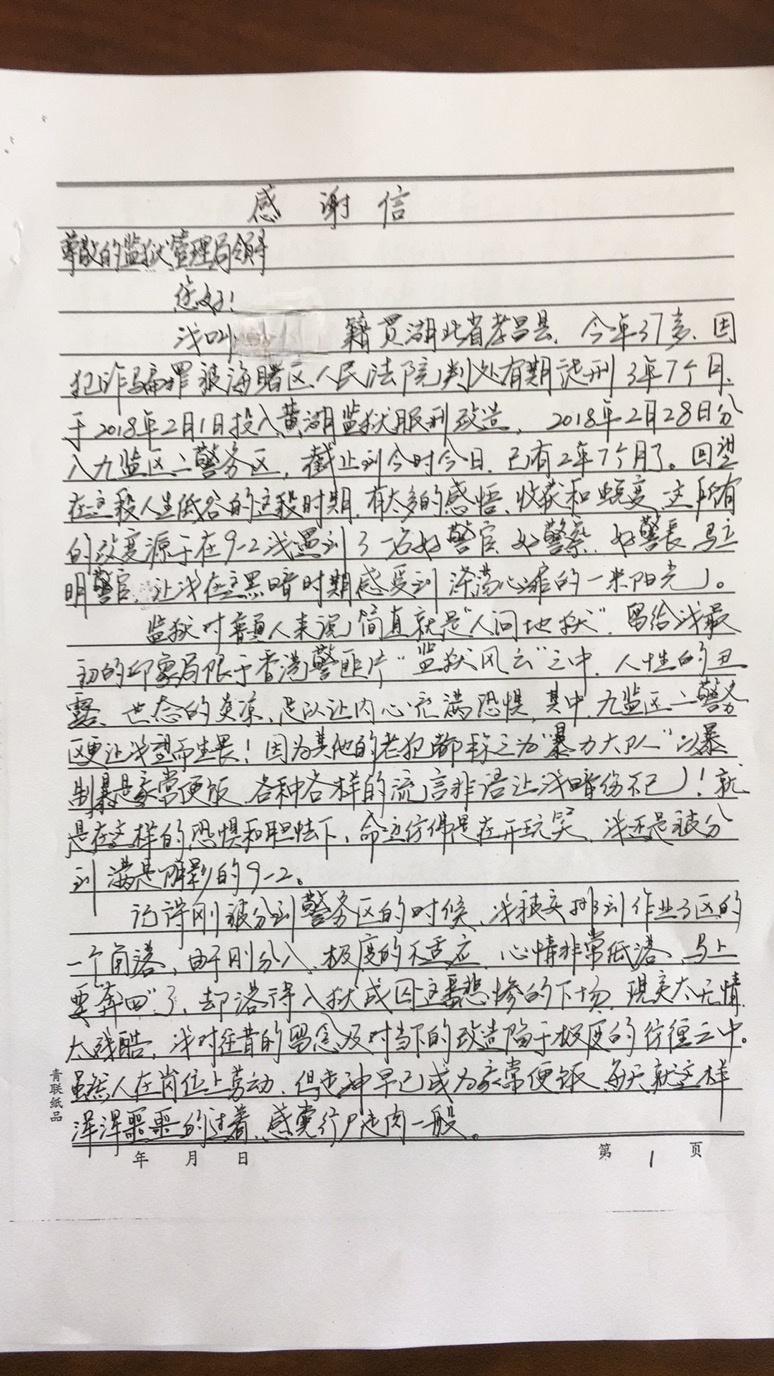 感谢信
尊敬的监狱管理局领导
您好!
我叫 籍贯湖北省孝昌县,今年37岁,因
犯诈骗罪被海曙区人民法院判处有期徒刑3年7个月,
于2018年2月1日投入黄湖监狱服刑改造,2018年2月28日分
入九监区二警务区,截止到今时今日,已有2年7个月了。回望
在这段人生低谷的这段时期,有太多的感悟、收获和蜕变,这所有
的改变源于在9-2我遇到了一名好警官、好警察、好警长马立
明警官,让我在这黑暗时期感受到涤荡心 的一米阳光。
监狱对普通人来说,简直就是"人间地狱",留给我最
初的印象局限于香港警匪片"监狱风云"之中,人性的丑
露、世态的炎凉,足以让内心充满恐惧,其中九监区二警务
区更让我望而生畏!因为其他的老犯都称之为"暴力大队"以暴
制暴是家常便饭,各种各样的流言非语让我暗伤不已!就
是在这样的恐惧和胆怯下,命运仿佛是在开玩笑,我还是被分
到满是阴影的9-2。
记得刚被分到警务区的时候,我被安排到作业3区的
一个角落,由于刚分入,极度的不适应,心情非常低落、马上
要奔"四"了,却落得入狱成囚这番悲惨的下场,现实太无情
太残酷,我对往昔的留念及对当下的改造陷于极度的彷徨之中。
虽然人在岗位上劳动,但走神早已成为家常便饭,每天就这样
浑浑噩噩的过着,感觉行尸走肉一般。
青联纸品
年 月 日 第 1 页